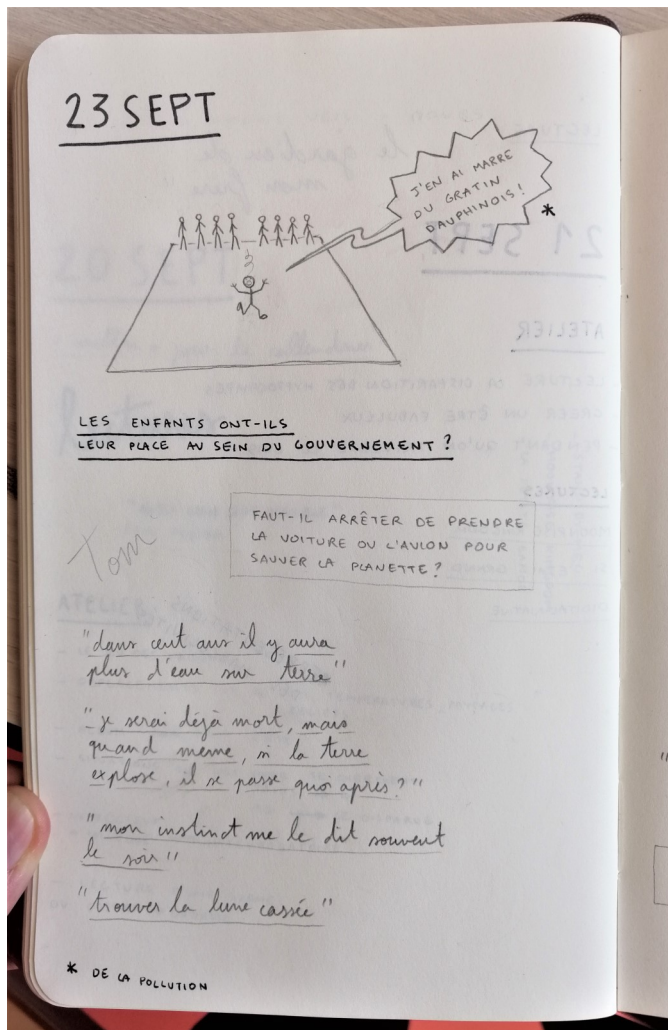 23 SEPT
J'EN AI MARRE
DU GRATIN
DAUPHINOIS!
*
LES ENFANTS ONT-ILS
LEUR PLACE AU SEIN DU GOUVERNEMENT?
FAUT-IL ARRÊTER DE PRENDRE
LA VOITURE OU L'AVION POUR
SAUVER LA PLANETTE?
Tom
"dans cent ans il y aura
plus d'eau sur terre"
"je serai déjà mort, mais
quand même, si la terre
explose, il se passe quoi après?"
"mon instinct me le dit souvent
le soir"
"trouver la lune cassée"
* DE LA POLLUTION